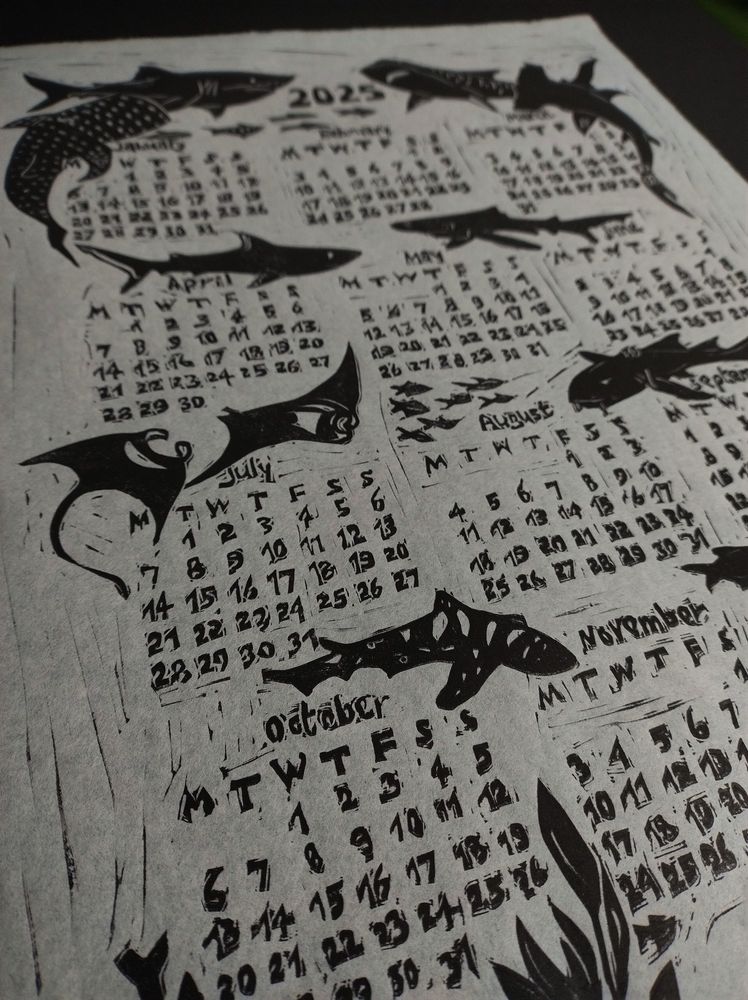 2025
January
M W T F S S
1 2 3 4 5
6 7 8 9 10 11 12
13 14 15 16 17 18 19
20 21 22 23 24 25 26
27 28 29 30 31
February
M T W T F S S
1 2
3 4 5 6 7 8 9
10 11 12 13 14 15 16
17 18 19 20 21 22 23
24 25 26 27 28
March
M T W T F
3 4 5 6 7 8 9
10 11 12 13 14 15 16
17 18 19 20 21 22 23
24 25 26 27 28 29 30
31
April
M T W T F S S
1 2 3 4 5 6
7 8 9 10 11 12 13
14 15 16 17 18 19 20
21 22 23 24 25 26 27
28 29 30
May
M T W T F S S
1 2 3 4
5 6 7 8 9 10 11
12 13 14 15 16 17 18
19 20 21 22 23 24 25
26 27 28 29 30 31
June
M T W T F S S
1
2 3 4 5 6 7 8
9 10 11 12 13 14
16 17 18 19 20 21
23 24 25 26 27 28
July
M T W T F S S
1 2 3 4 5 6
7 8 9 10 11 12 13
14 15 16 17 18 19 20
21 22 23 24 25 26 27
28 29 30 31
August
M T W T F S S
1 2 3
4 5 6 7 8 9 10
11 12 13 14 15 16 17
18 19 20 21 22 23 24
25 26 27 28 29 30 31
Septem
M T
1 2
8 9
15
22
October
M T W T F S S
1 2 3 4 5
6 7 8 9 10 11 12
13 14 15 16 17 18 19
20 21 22 23 24 25 26
29 30 31
November
M T W T F S
1
3 4 5 6 7
10 11 12 13 14
17 18 19 20
24 25 26